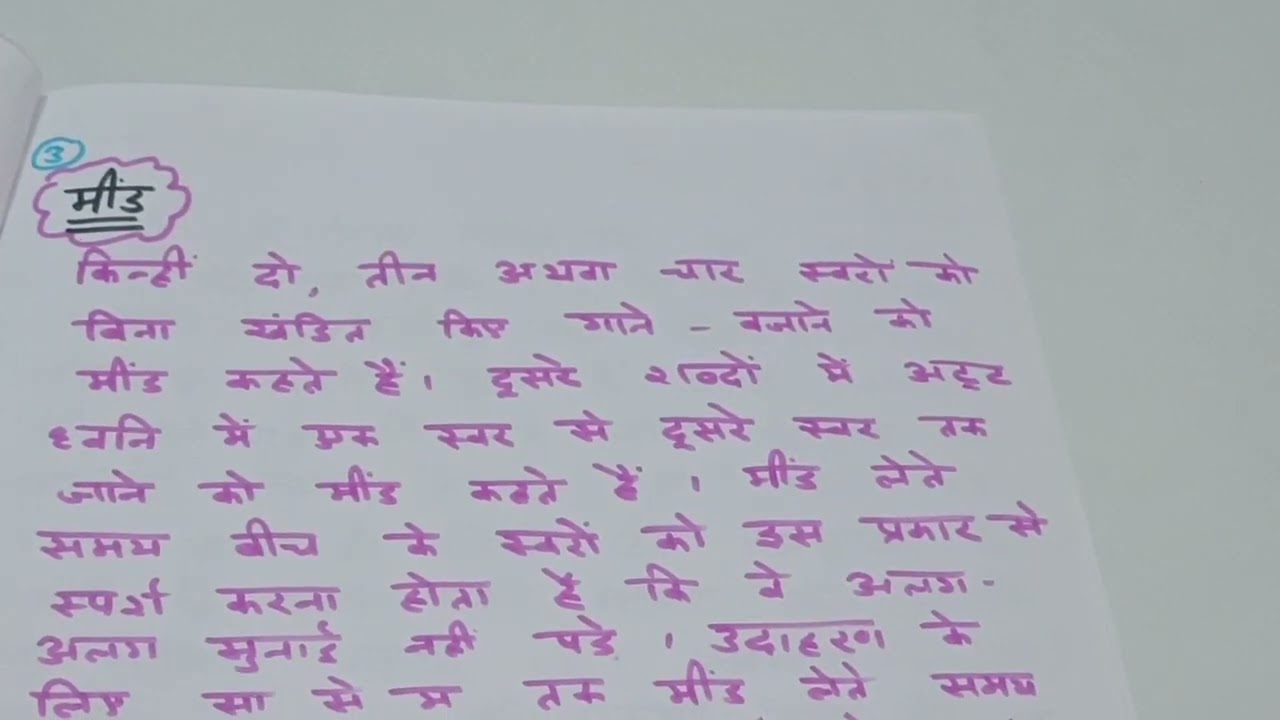 3
मींड
किन्हीं दो, तीन अथवा चार स्वरों को
बिना खंडित किए गाने - बजाने को
मींड कहते हैं। दूसरे शब्दों में अटूट
ध्वनि में एक स्वर से दूसरे स्वर तक
जाने को मींड कहते हैं । मींड लेते
समय बीच के स्वरों को इस प्रकार से
स्पर्श करना होता है कि वे अलग -
अलग सुनाई नहीं पडे । उदाहरण के
लिए सा से म तक मींड लेते समय